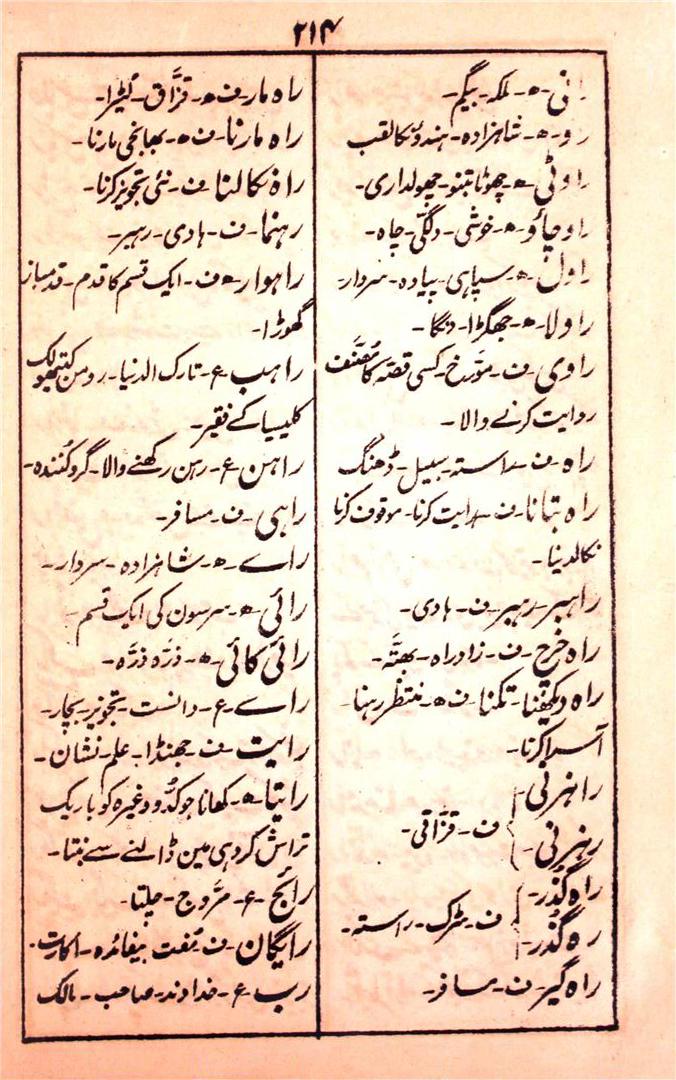 ۲۱۴
رانی۔ھ۔ ملکہ۔ بیگم۔
راو۔ھ۔ شاہزادہ۔ ہندؤنکا لقب
راوٹی۔ھ۔ چھوٹا تنبو۔ چھولداری۔
راوچاؤ۔ھ۔ خوشی۔ دلگی۔ چاہ۔
راول۔ھ۔ سپاہی۔ پیادہ۔ سردار۔
راولا۔ھ۔ جھگڑا۔ دنگا۔
راوی۔ف۔ مورّخ۔ کسی قصّہ کا مُصنّف
روایت کرنے والا۔
راہ۔ف۔ راستہ۔ سبیل۔ ڈھنگ
راہ بتانا۔ف۔ ہدایت کرنا۔ موقوف کرنا
نکالدینا۔
راہبر۔ رہبر۔ف۔ ہادی۔
راہ خرچ۔ف۔ زاد راہ۔ بھتّہ۔
راہ دیکھنا۔ تکنا۔ف ھ۔ منتظر رہنا۔
آسرا کرنا۔
راہزنی۔
رہزنی۔ } ف۔ قزّاقی۔
راہ گذر۔
رہ گذر۔ } ف۔ سڑک۔ راستہ۔
راہ گیر۔ف۔ مسافر۔
راہ مار۔ف ھ۔ قزّاق۔ لُٹیرا۔
راہ مارنا۔ف ھ۔ بھانجی مارنا۔
راہ نکالنا۔ف۔ نئی تجویز کرنا۔
رہنما۔ف۔ ہادی۔ رہبر۔
راہوار۔ھ ف۔ ایک قسم کا قدم۔ قدمباز
گھوڑا۔
راہب۔ع۔ تارک الدنیا۔ رومن کیتھولک
کلیسیا کے فقیر۔
راہن۔ع۔ رہن رکھنے والا۔ گرو کُنندہ۔
راہی۔ف۔ مسافر۔
راے۔ھ۔ شاہزادہ۔ سردار۔
رائی۔ھ۔ سرسون کی ایک قسم۔
رائی کائی۔ھ۔ ذرّہ ذرّہ۔
راے۔ع۔ دانست۔ تجویز۔ بچار۔
رایت۔ف۔ جھنڈا۔ علم۔ نشان۔
رایتا۔ھ۔ کھانا جو کدّو وغیرہ کو باریک
تراش کر دہی مین ڈالنے سے بنتا۔
رائج۔ع۔ مرّوج۔ چلتا۔
رایگان۔ف۔ مُفت۔ بیفائدہ۔ اکارت۔
رب۔ع۔ خداوند۔ صاحب۔ مالک